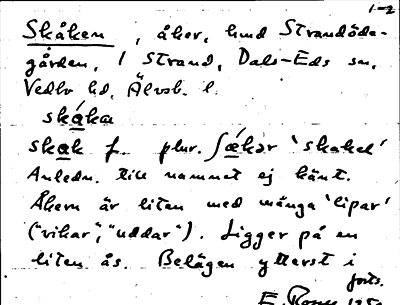 1-2
Skåken, åker, hmd Strandöde-
gården, 1 Strand, Dals-Eds sn,
Vedbo hd, Älvsb. l.
skáka
skak f. plur. ʃǽkər 'skakel'
Anledn. till namnet ej känt.
Åkern är liten med många 'lipar'
("vikar", "uddar"). Ligger på en
liten ås. Belägen ytterst i
forts.
E.